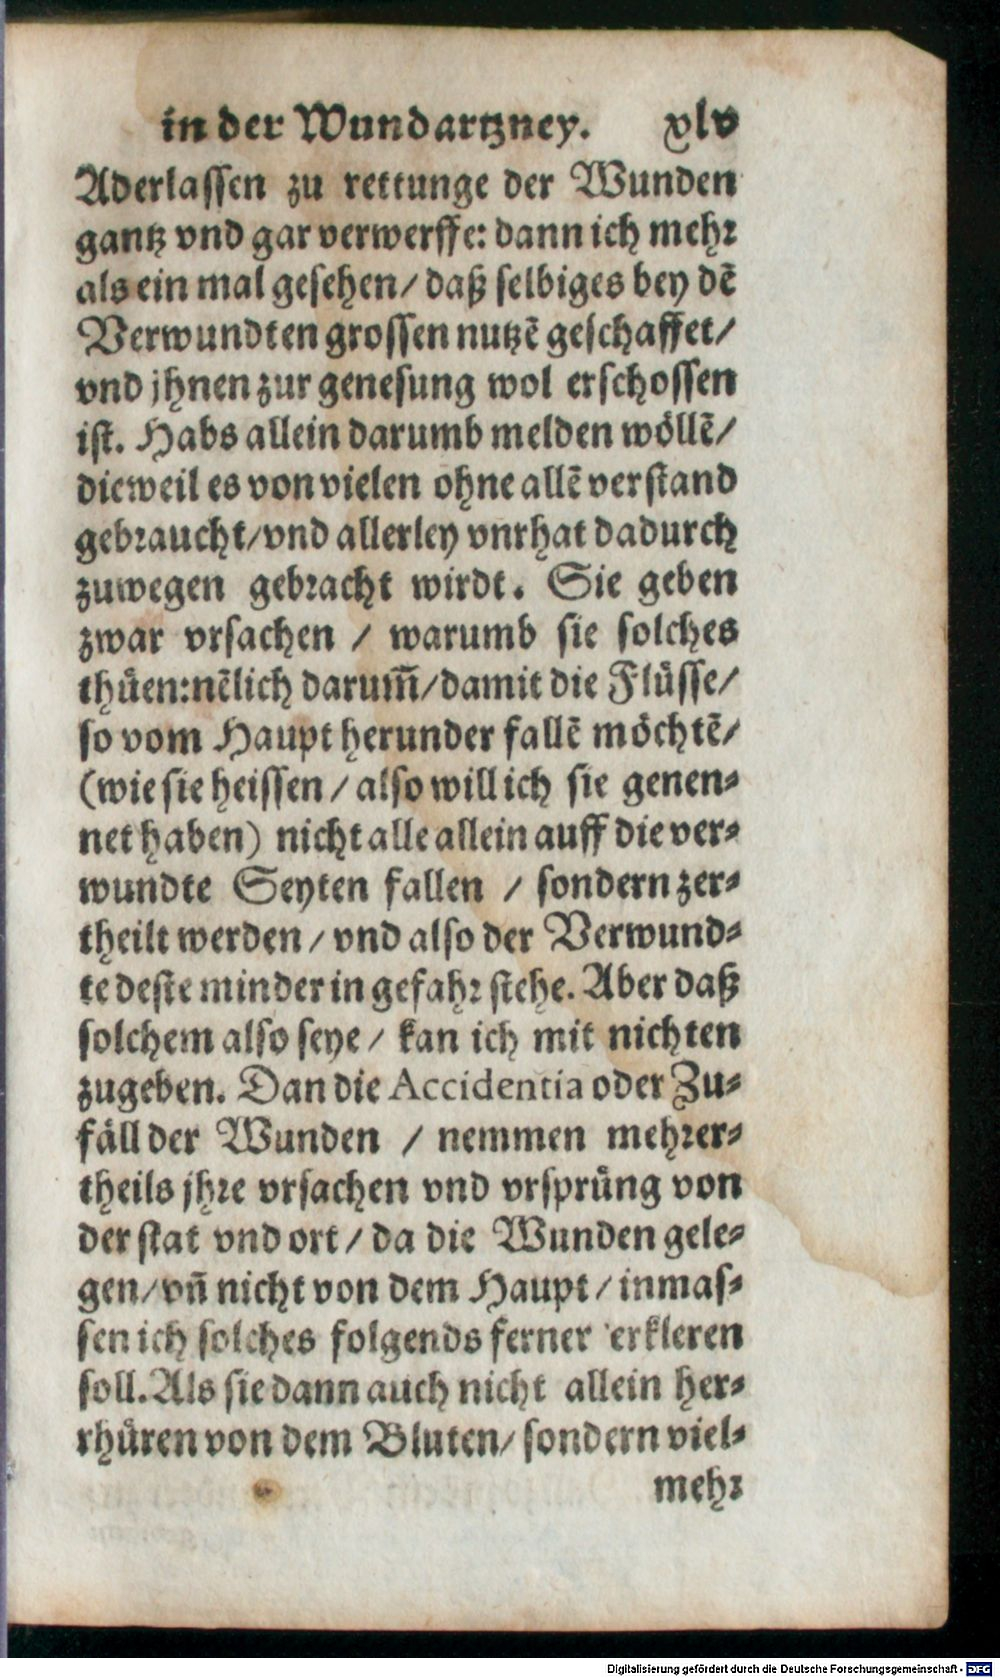 in der Wundartzney. xlv
Aderlassen zu rettunge der Wunden
gantz vnd gar verwerffe: dann ich mehr
als ein mal gesehen/ daß selbiges bey dẽ
Verwundten grossen nutzẽ geschaffet/
vnd jhnen zur genesung wol erschossen
ist. Habs allein darumb melden wöllẽ/
dieweil es von vielen ohne allẽ verstand
gebraucht/vnd allerley vnrhat dadurch
zuwegen gebracht wirdt. Sie geben
zwar vrsachen / warumb sie solches
thüen: nẽlich darum̃/damit die Flüsse/
so vom Haupt herunder fallẽ möchtẽ/
(wie sie heissen / also will ich sie genen-
net haben) nicht alle allein auff die ver-
wundte Seyten fallen / sondern zer-
theilt werden / vnd also der Verwund-
te deste minder in gefahr stehe. Aber daß
solchem also seye / kan ich mit nichten
zugeben. Dan die Accidentia oder Zu-
fäll der Wunden / nemmen mehrer-
theils jhre vrsachen vnd vrsprüng von
der stat vnd ort / da die Wunden gele-
gen/vñ nicht von dem Haupt / inmas-
sen ich solches folgends ferner erkleren
soll. Als sie dann auch nicht allein her-
rhüren von dem Bluten/ sondern viel-
mehr
Digitalisierung gefördert durch die Deutsche Forschungsgemeinschaft - DFG